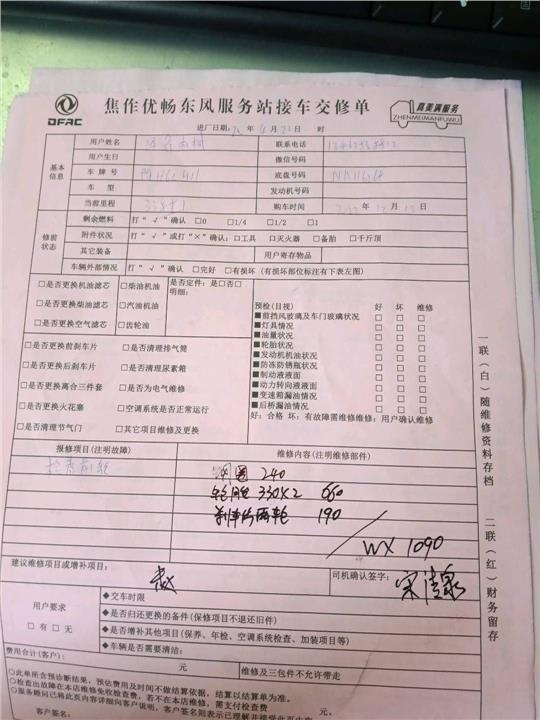 DFAC
焦作优畅东风服务站接车交修单
真美满服务
ZHENMEIMANFUWU
进厂日期: 年 4 月 22 日 时
基本信息
用户姓名 联系电话
用户生日 微信号码
车 牌 号 底盘号码
车 型 发动机号码
当前里程 购车时间 年 12 月 日
修前状态
剩余燃料 打“√”确认 □0 □1/4 □1/2 □1
附件状况 打“√”或打“×”确认:□工具 □灭火器 □备胎 □千斤顶
其它装备 用户寄存物品
车辆外部情况 打“√”确认 □完好 □有损坏（有损坏部位标注有下表左图）
□是否更换机油滤芯 □柴油机油 是否定件：是□否□
明细:
□是否更换柴油滤芯 □汽油机油
□是否更换空气滤芯 □齿轮油
预检(目视) 好 坏 维修
■前挡风玻璃及车门玻璃状况 □ □ □
■灯具情况 □ □ □
■油量状况 □ □ □
■轮胎状况 □ □ □
■发动机机油状况 □ □ □
■防冻防锈瓶状况 □ □ □
■制动液液面 □ □ □
■动力转向液液面 □ □ □
■变速箱漏油情况 □ □ □
■后桥漏油情况 □ □ □
好：合格 坏：有故障需维修维修：用户确认维修
□是否更换前刹车片 □是否清理排气筒
□是否更换后刹车片 □是否清理尿素箱
□是否更换离合三件套 □是否为电气维修
□是否更换火花塞 □空调系统是否正常运行
□是否清理节气门 □其它项目维修及更换
报修项目(注明故障) 维修内容(注明维修部件)
钢圈 240
轮胎 330×2 660
刹车片两轮 190
WX 1090
建议维修项目或增补项目: 司机确认签字: 宋清泉
用户要求
□有 □无
◆交车时限
◆是否归还更换的备件(保修项目不退还旧件)
◆是否增补其他项目(保养、年检、空调系统检查、加装项目等)
◆车辆是否需要清洁:
费用合计(客户): 元 维修及三包件不允许带走
○此单所含预诊断结果，预估费用及时间不做结算依据，结算以结算单为准。
○检查出故障在本店维修免收检查费，若不在本店维修，需支付检查费 元。
○服务顾问已将此页内容详细向客户说明，客户签名则表示已理解并接受此页内容
客户签名:
一联（白）随维修资料存档 二联（红）财务留存